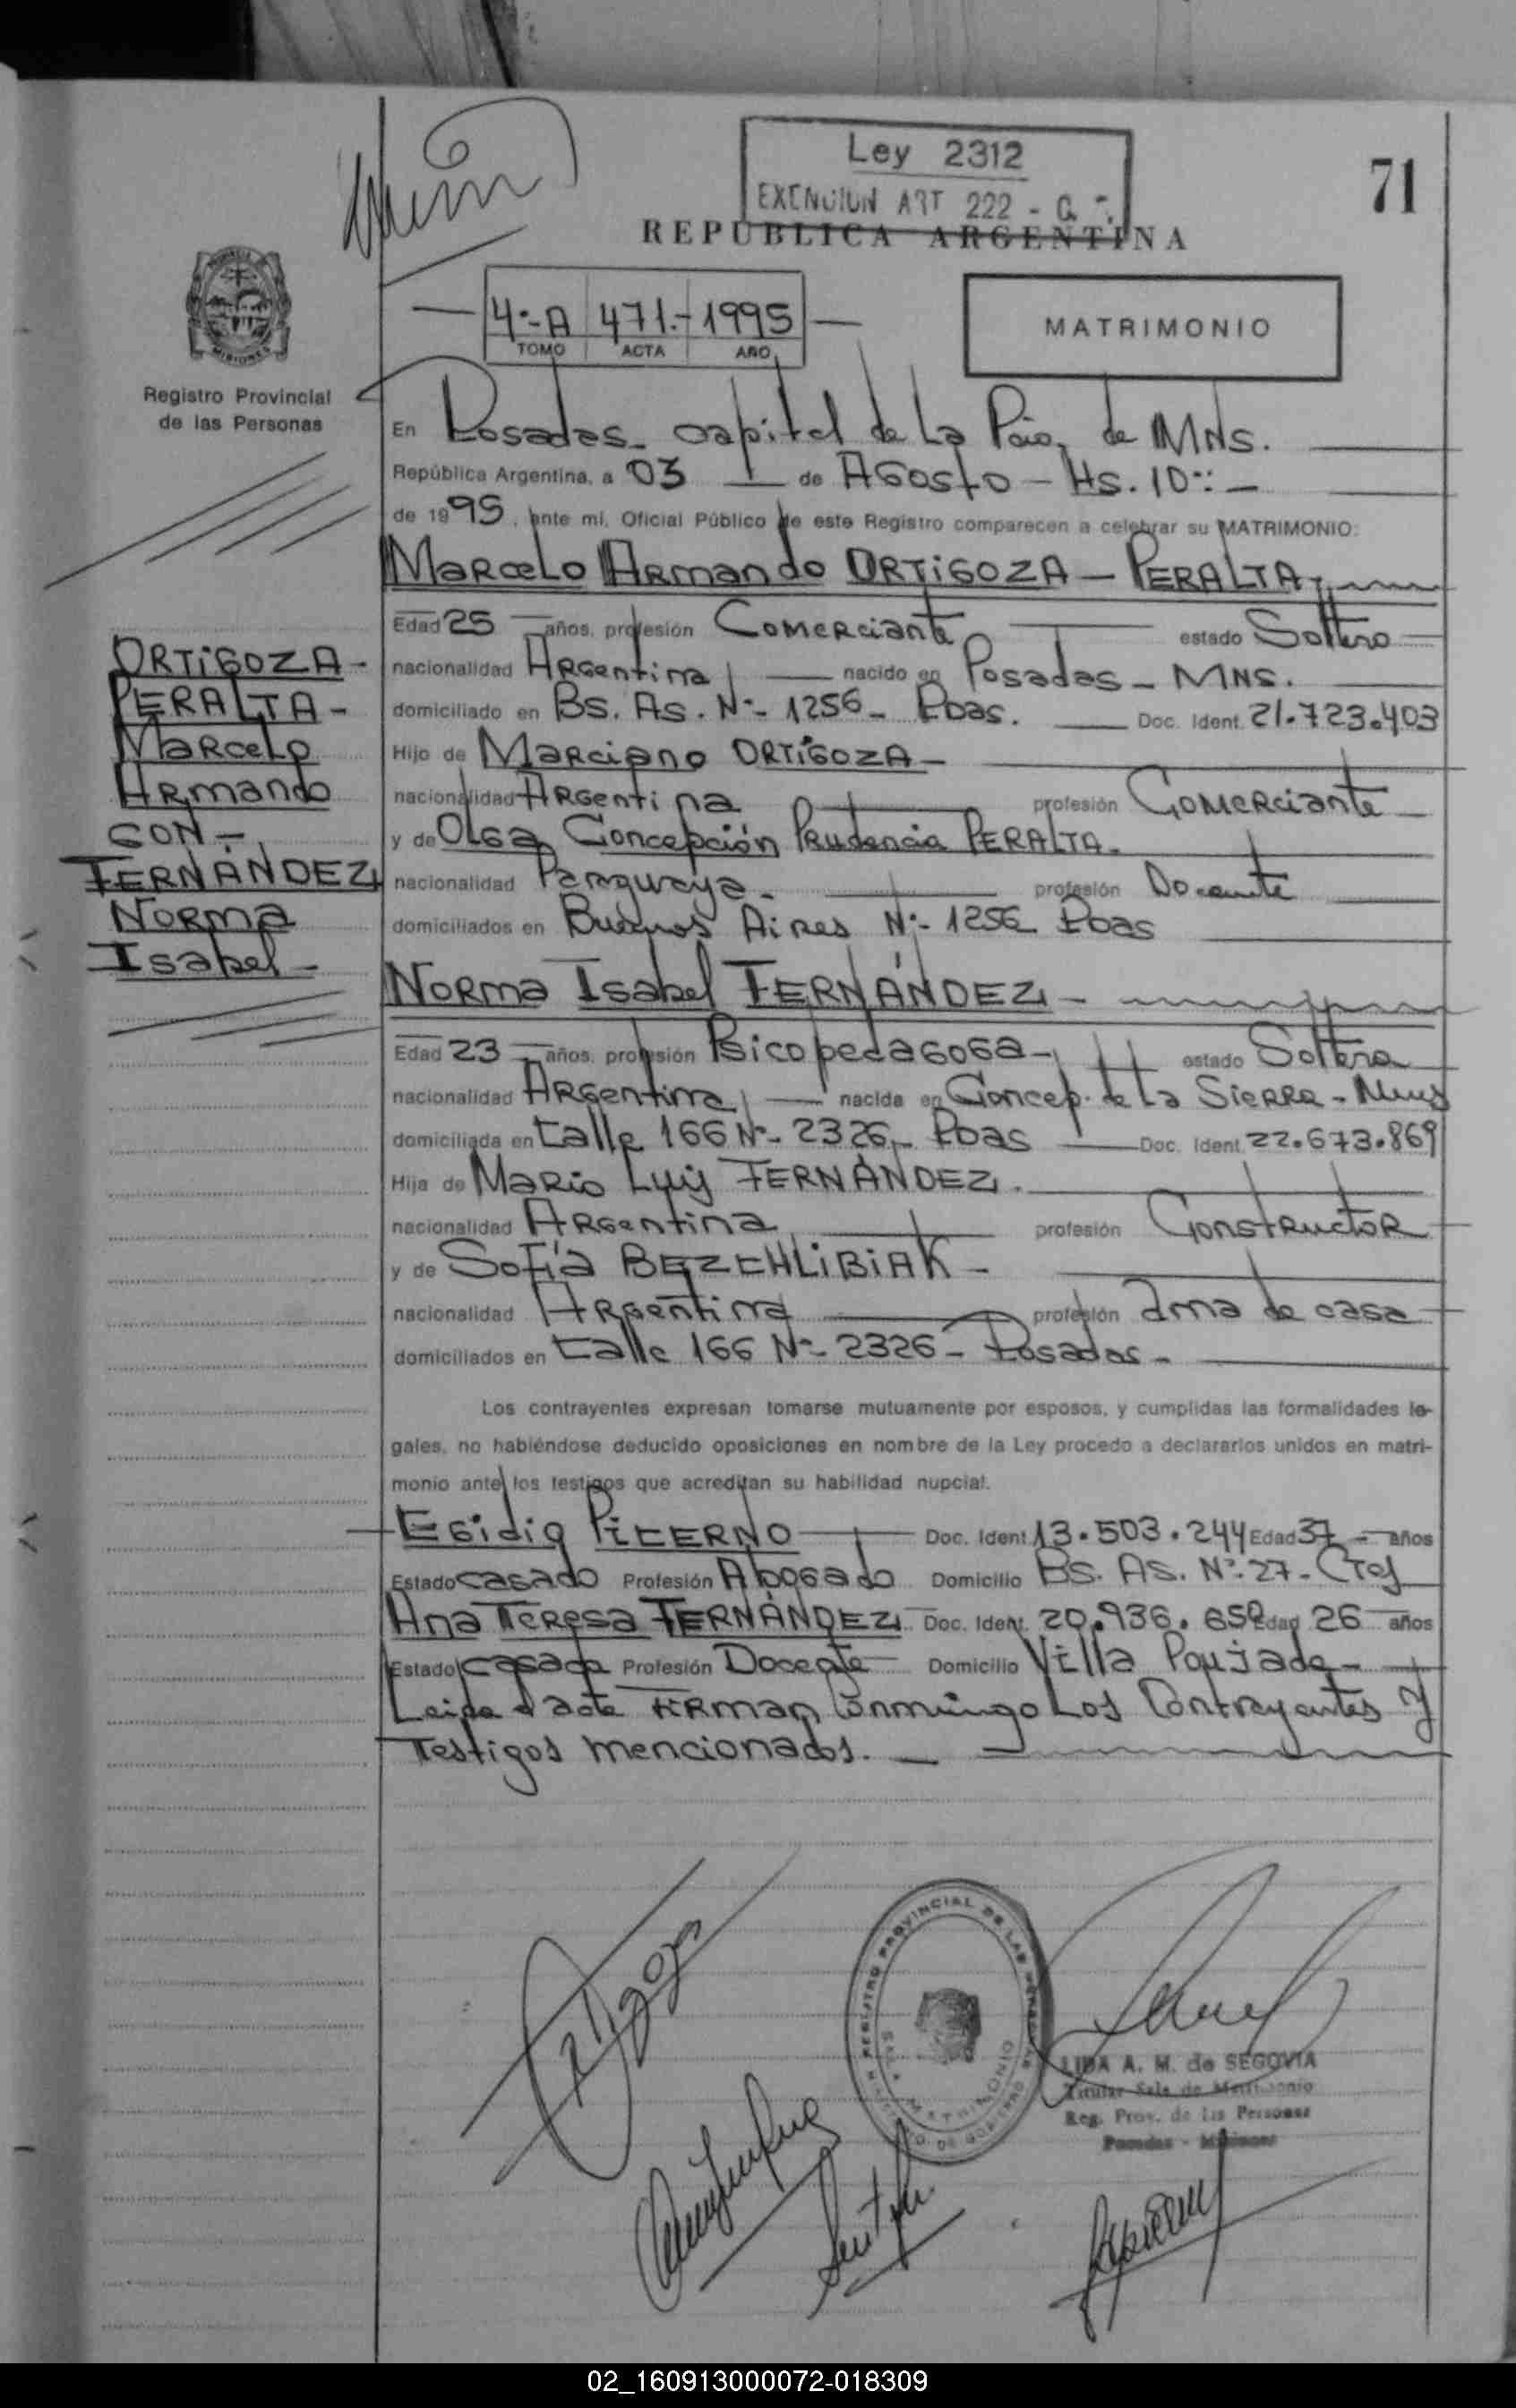 Ley 2312
EXENCION ART 222 - C.
71
REPUBLICA ARGENTINA
4º-A 471.- 1995
TOMO ACTA AÑO
MATRIMONIO
Registro Provincial
de las Personas
En Posadas - Capital de La Pcia. de MNS.
República Argentina, a 03 de AGosto - Hs. 10:-
de 1995, ante mí, Oficial Público de este Registro comparecen a celebrar su MATRIMONIO:
Marcelo Armando ORTIGOZA - PERALTA
Edad 25 años, profesión Comerciante estado Soltero
nacionalidad Argentina nacido en Posadas - MNS.
domiciliado en Bs. As. Nº- 1256 - Pdas. Doc. Ident. 21.723.403
Hijo de Marciano ORTIGOZA -
nacionalidad Argentina profesión Comerciante
y de Olga Concepción Prudencia PERALTA.
nacionalidad Paraguaya - profesión Docente
domiciliados en Buenos Aires Nº- 1256 Pdas
ORTIGOZA -
PERALTA -
Marcelo
Armando
CON -
FERNÁNDEZ
Norma
Isabel -
Norma Isabel FERNÁNDEZ -
Edad 23 años, profesión Psicopedagoga - estado Soltera
nacionalidad Argentina nacida en Concep. de La Sierra - Mnes
domiciliada en Calle 166 Nº- 2326 - Pdas Doc. Ident. 22.673.869
Hija de Mario Luis FERNÁNDEZ.
nacionalidad Argentina profesión Constructor
y de Sofía BEZCHLIBIAK -
nacionalidad Argentina profesión Ama de casa
domiciliados en Calle 166 Nº- 2326 - Posadas -
Los contrayentes expresan tomarse mutuamente por esposos, y cumplidas las formalidades le-
gales, no habiéndose deducido oposiciones en nombre de la Ley procedo a declararlos unidos en matri-
monio ante los testigos que acreditan su habilidad nupcial.
Egidio PICERNO Doc. Ident. 13.503.244 Edad 37 - años
Estado casado Profesión Abogado Domicilio BS. AS. Nº- 27 - Ctes
Ana Teresa FERNÁNDEZ Doc. Ident. 20.936.650 Edad 26 años
Estado casada Profesión Docente Domicilio Villa Poujade -
Leida el acta Firman conmingo Los Contrayentes y
Testigos mencionados.
REGISTRO PROVINCIAL DE LAS PERSONAS
MATRIMONIO
LIDA A. M. de SEGOVIA
Titular Sala de Matrimonio
Reg. Prov. de las Personas
Posadas - Misiones
02_160913000072-018309